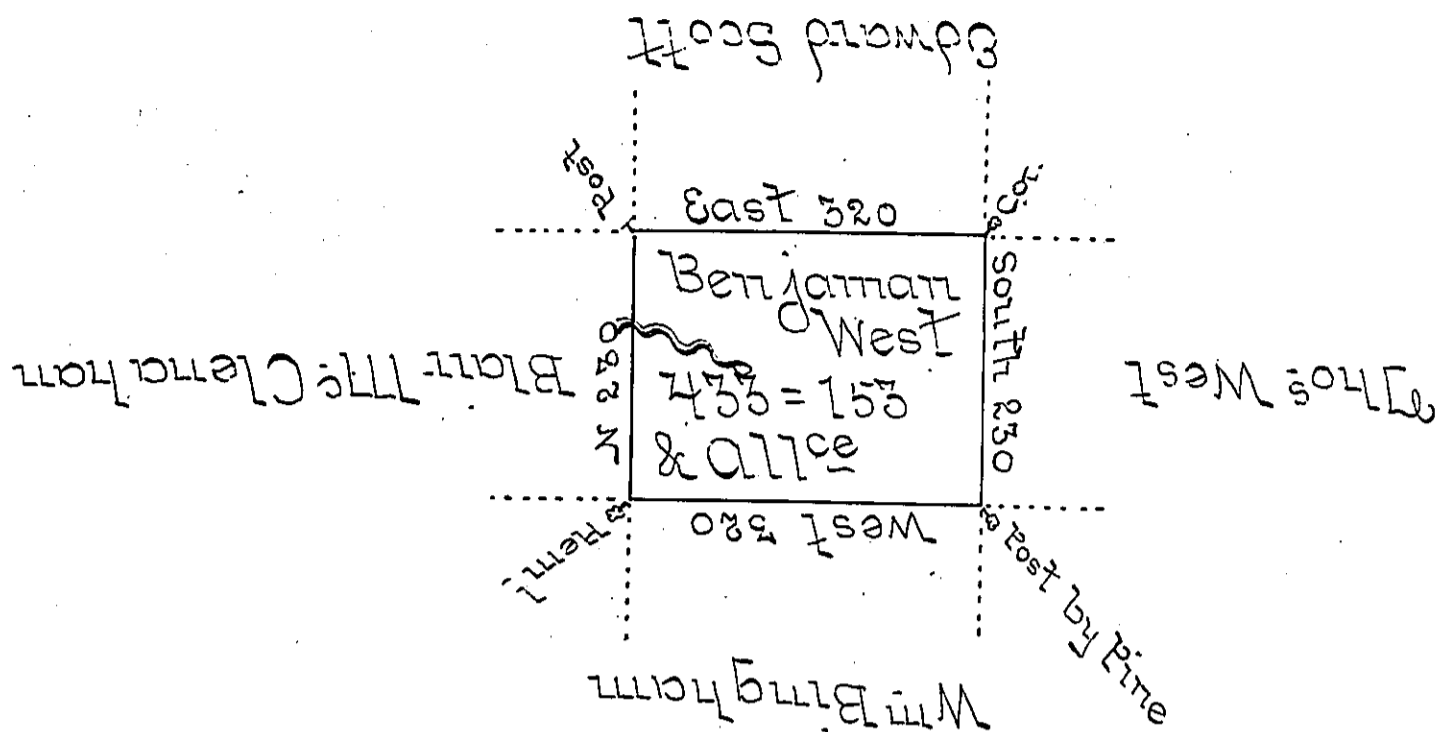 Edward Scott
Post
Cor.
East 320
Benjaman
West
433 = 153
& Allce
South 230
West 320
Blair Mc. Clenahan
Thos. West
Heml
Post by Pine
Wm Bingham